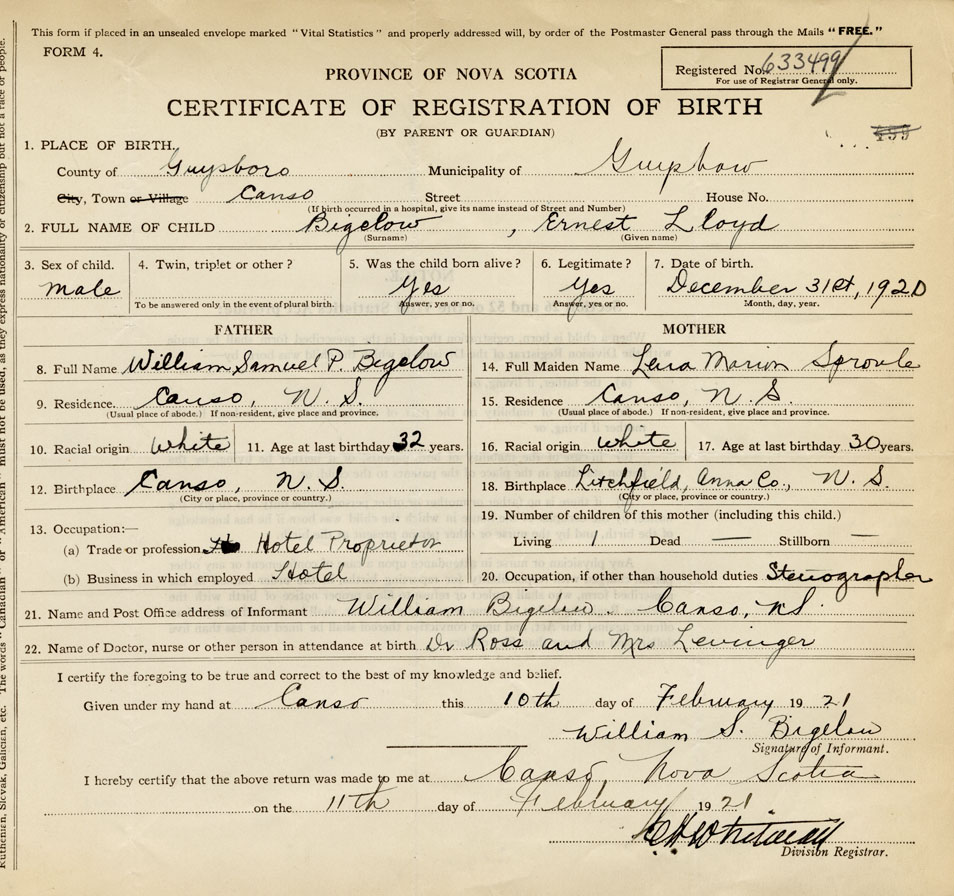 This form if placed in an unsealed envelope marked "Vital Statistics" and properly addressed will, by order of the Postmaster General pass through the Mails "FREE."
FORM 4.
Registered No. 633499
For use of Registrar General only.
PROVINCE OF NOVA SCOTIA
CERTIFICATE OF REGISTRATION OF BIRTH
(BY PARENT OR GUARDIAN)
1. PLACE OF BIRTH.
County of Guysboro Municipality of Guysboro
City, Town or Village Canso Street House No.
(If birth occurred in a hospital, give its name instead of Street and Number)
2. FULL NAME OF CHILD Bigelow, Ernest Lloyd
(Surname) (Given name)
3. Sex of child. 4. Twin, triplet or other? 5. Was the child born alive? 6. Legitimate? 7. Date of birth.
Male Yes Yes December 31st, 1920
To be answered only in the event of plural birth. Answer, yes or no. Answer, yes or no. Month, day, year.
FATHER
8. Full Name William Samuel P. Bigelow
9. Residence. Canso, N. S.
(Usual place of abode.) If non-resident, give place and province.
10. Racial origin White 11. Age at last birthday 32 years.
12. Birthplace Canso, N. S.
(City or place, province or country.)
13. Occupation:—
(a) Trade or profession Hotel Proprietor
(b) Business in which employed Hotel
MOTHER
14. Full Maiden Name Lena Marion Sproule
15. Residence Canso, N. S.
(Usual place of abode.) If non-resident, give place and province.
16. Racial origin White 17. Age at last birthday 30 years.
18. Birthplace Litchfield, Anna Co., N. S.
(City or place, province or country.)
19. Number of children of this mother (including this child.)
Living 1 Dead — Stillborn —
20. Occupation, if other than household duties Stenographer
21. Name and Post Office address of Informant William Bigelow. Canso, N.S.
22. Name of Doctor, nurse or other person in attendance at birth Dr Ross and Mrs Levinger
I certify the foregoing to be true and correct to the best of my knowledge and belief.
Given under my hand at Canso this 10th day of February 1921
William S. Bigelow
Signature of Informant.
I hereby certify that the above return was made to me at Canso, Nova Scotia
on the 11th day of February 1921.
Division Registrar.
must not be used, as they express nationality or citizenship but not a race or people.
The words "Canadian" or "American"
Ruthenian, Slovak, Galician, etc.